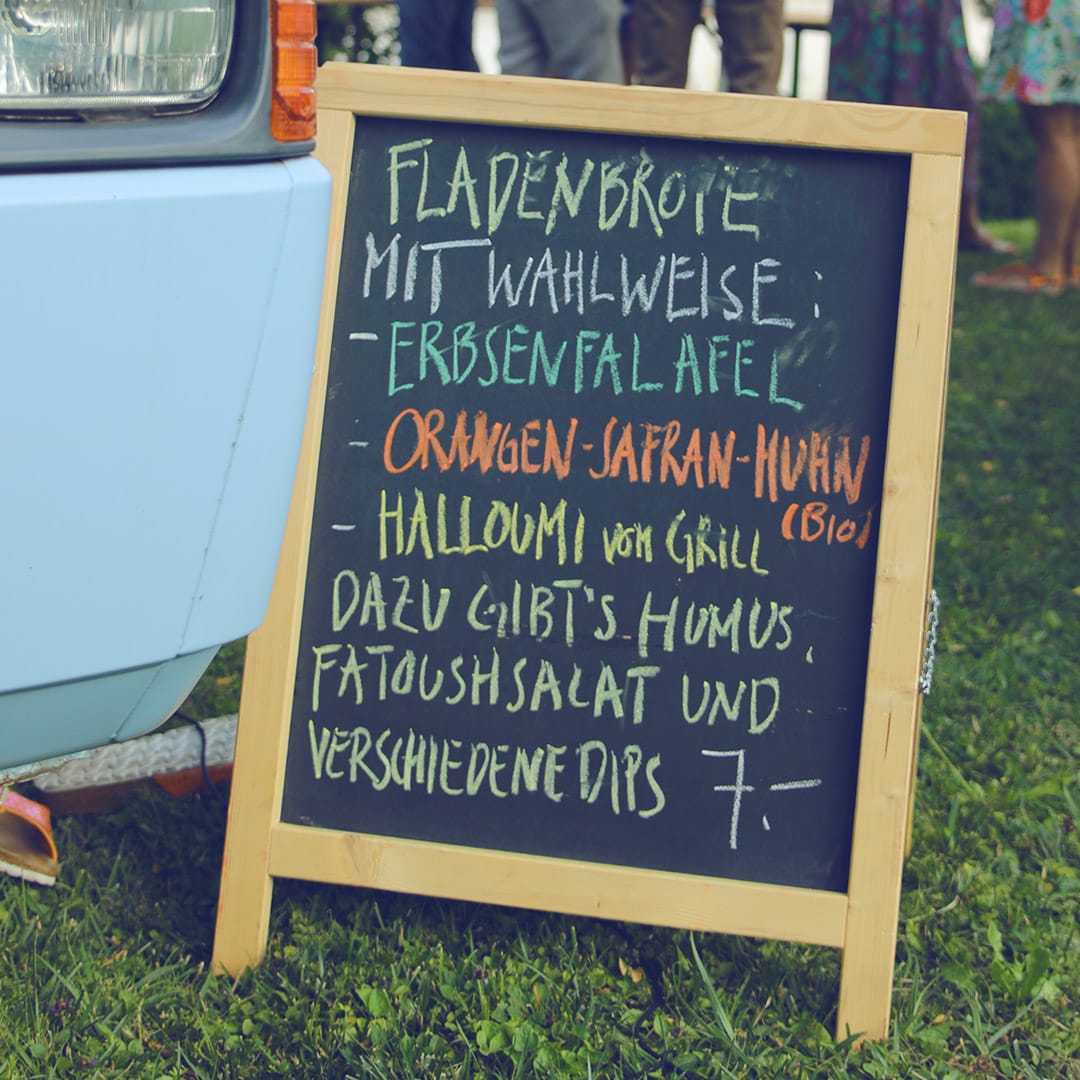 FLADENBROTE
MIT WAHLWEISE:
- ERBSENFALAFEL
- ORANGEN-SAFRAN-HUHN
(BIO)
- HALLOUMI VOM GRILL
DAZU GIBT'S HUMUS,
FATOUSHSALAT UND
VERSCHIEDENE DIPS 7.-